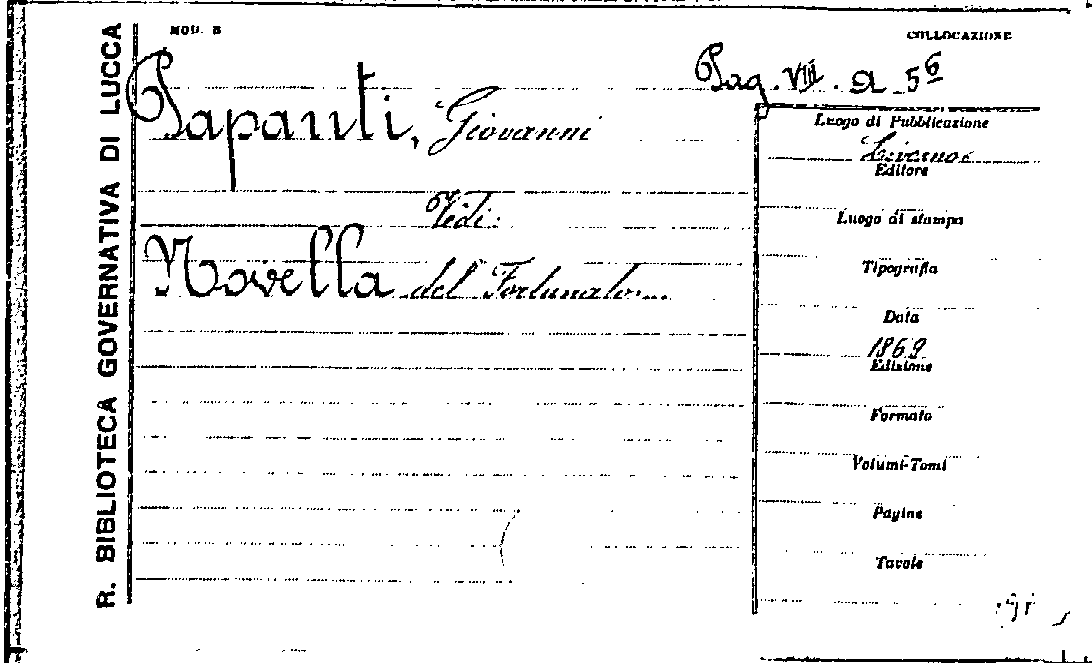 R. BIBLIOTECA GOVERNATIVA DI LUCCA
MOD. B
COLLOCAZIONE
Pag. VIII. a 56
Papanti, Giovanni
Vedi:
Novella del Fortunato...
Luogo di Pubblicazione
Livorno
Editore
Luogo di stampa
Tipografia
Data
1869
Edizione
Formato
Volumi-Tomi
Pagine
Tavole